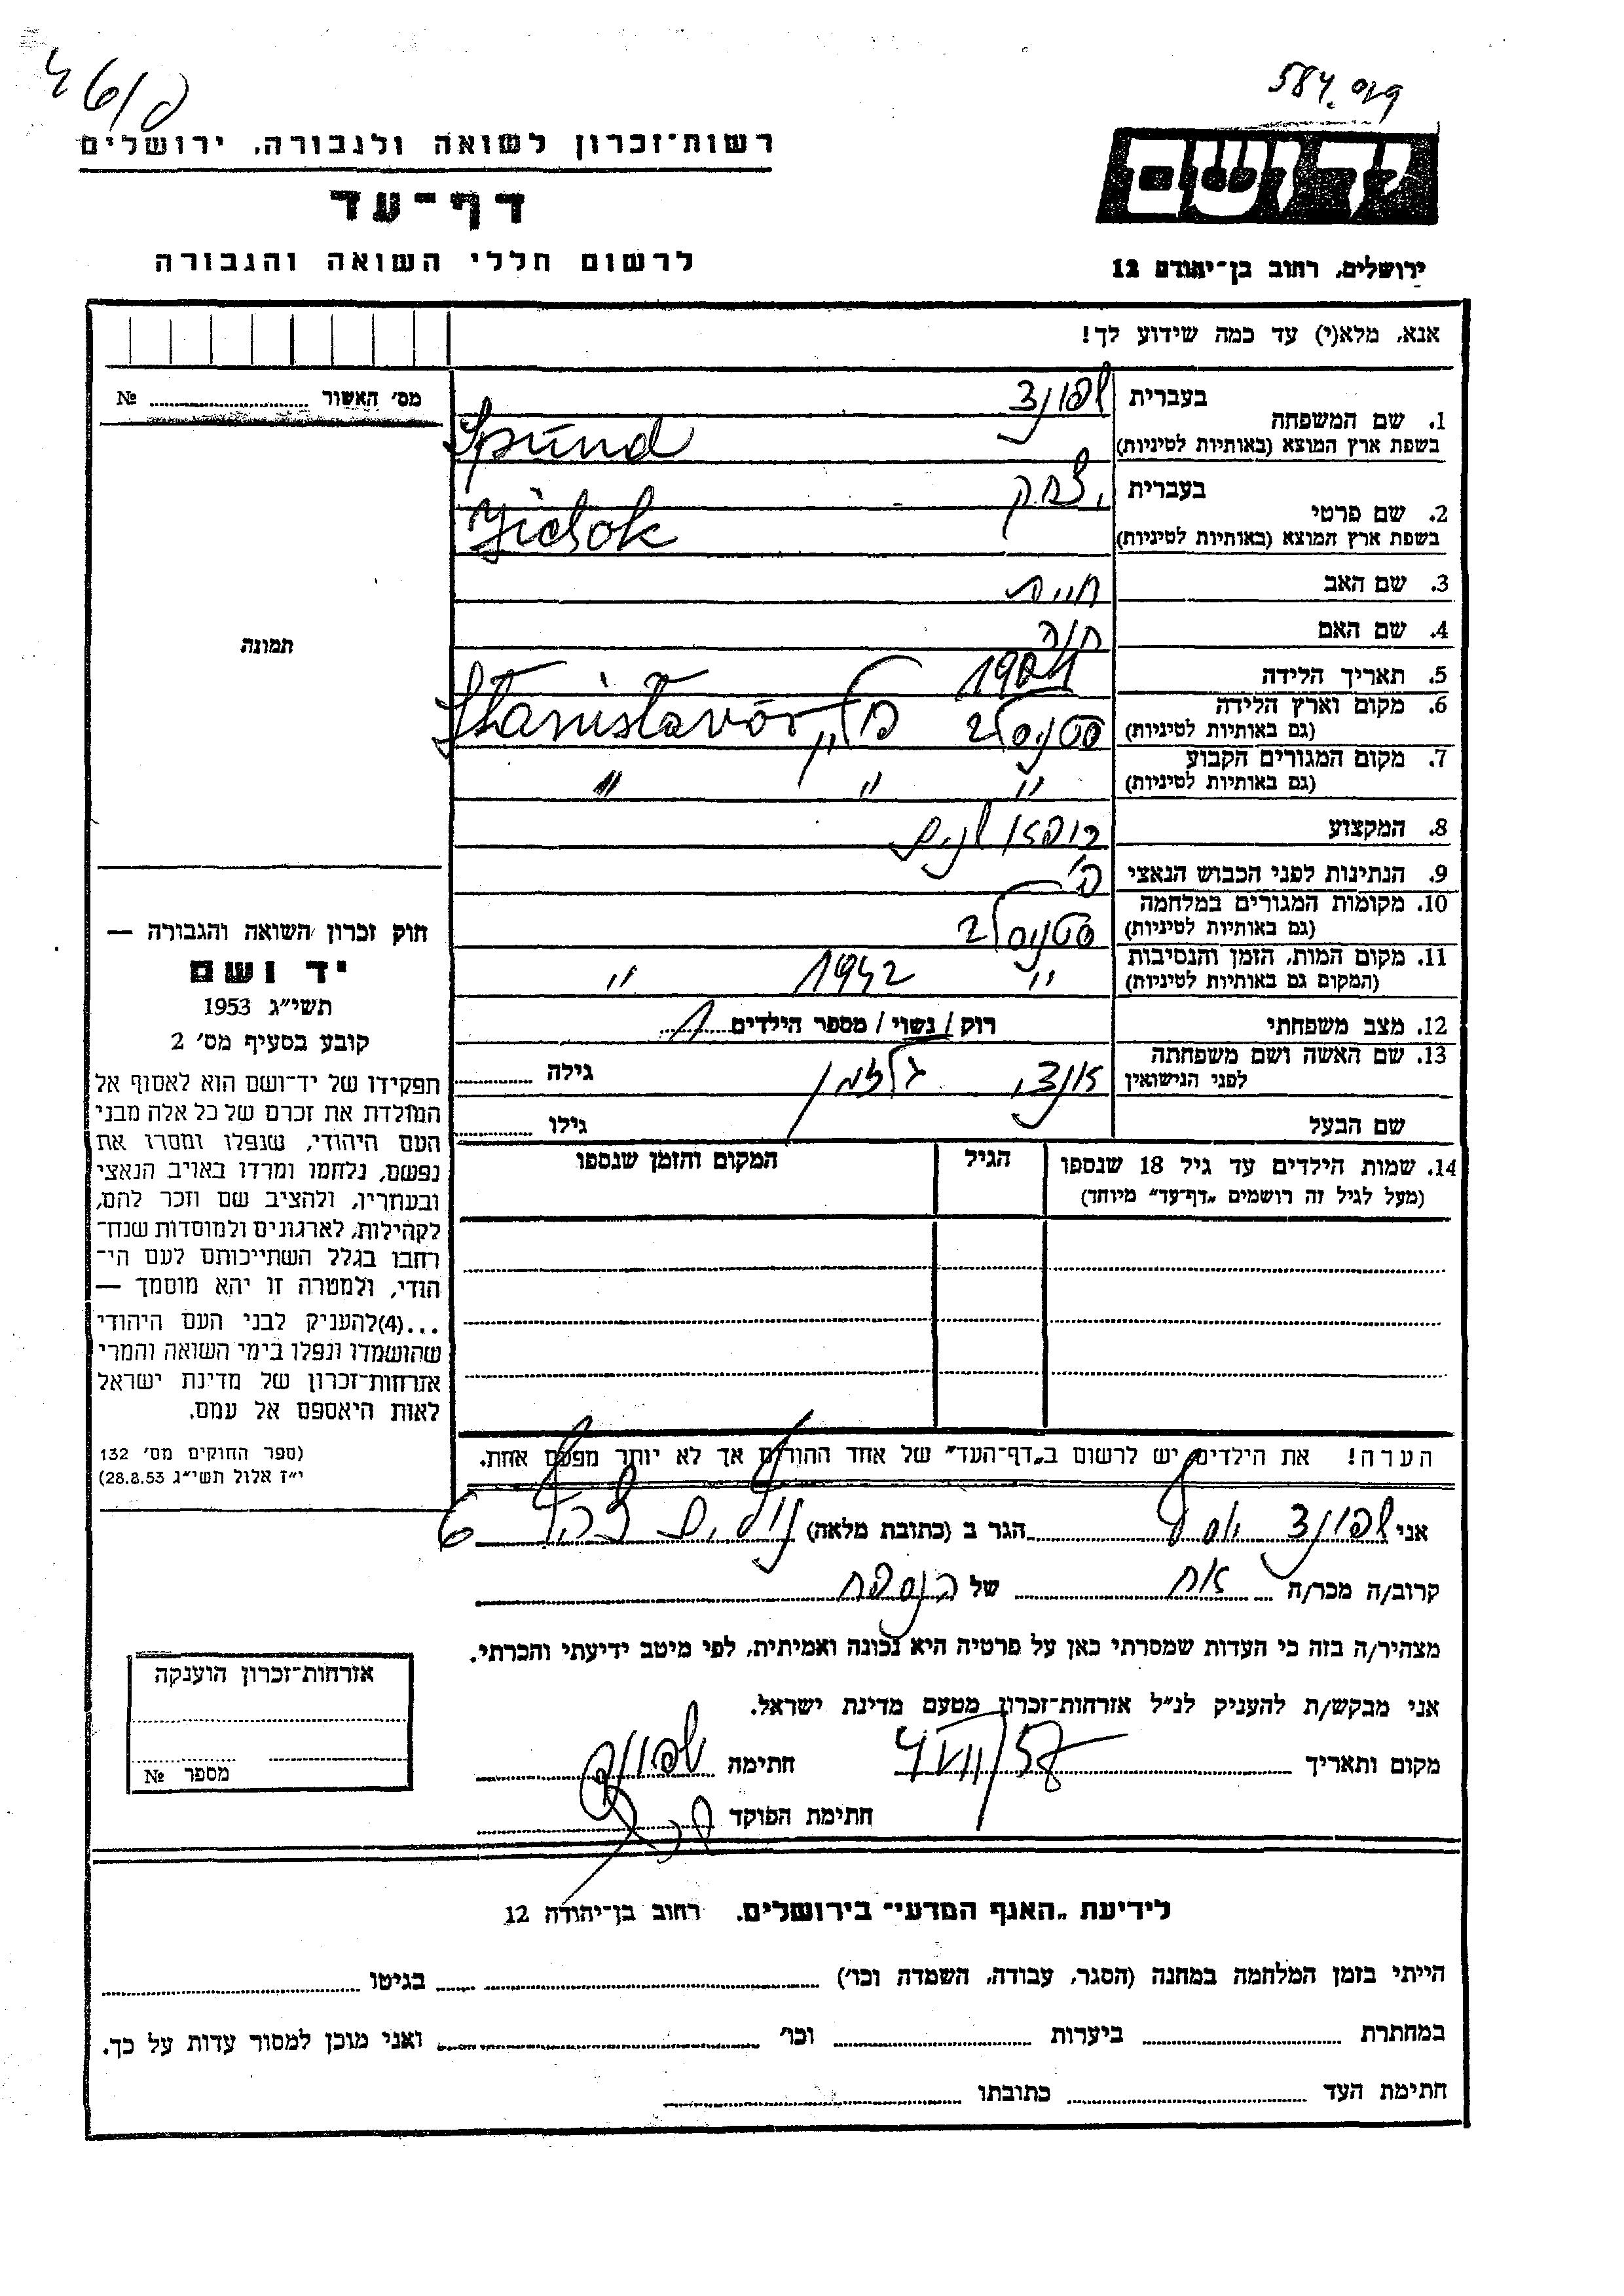 584.
רשות־זכרון לשואה ולגבורה. ירושלים
דף־עד
לרשום חללי השואה והגבורה
יד ושם
ירושלים, רחוב בן־יהודה 12
אנא, מלא(י) עד כמה שידוע לך!
מס׳ האשור № 
תמונה
1. שם המשפחה
בעברית שפונד
בשפת ארץ המוצא (באותיות לטיניות) Spund
2. שם פרטי
בעברית יצחק
בשפת ארץ המוצא (באותיות לטיניות)
3. שם האב חיים
4. שם האם חנה
5. תאריך הלידה
6. מקום וארץ הלידה
(גם באותיות לטיניות) פולין Stanislavór
7. מקום המגורים הקבוע
(גם באותיות לטיניות) " " "
8. המקצוע רופא שנים
9. הנתינות לפני הכבוש הנאצי פ׳
10. מקומות המגורים במלחמה
(גם באותיות לטיניות)
11. מקום המות, הזמן והנסיבות
(המקום גם באותיות לטיניות) " 1942 "
12. מצב משפחתי רוק / נשוי / מספר הילדים 1
13. שם האשה ושם משפחתה
לפני הנישואין גילה
שם הבעל גילו
14. שמות הילדים עד גיל 18 שנספו
(מעל לגיל זה רושמים „דף־עד" מיוחד)
הגיל
המקום והזמן שנספו
הערה! את הילדים יש לרשום ב„דף־העד" של אחד ההורים אך לא יותר מפעם אחת.
חוק זכרון השואה והגבורה —
יד ושם
תשי״ג 1953
קובע בסעיף מס׳ 2
תפקידו של יד־ושם הוא לאסוף אל
המולדת את זכרם של כל אלה מבני
העם היהודי, שנפלו ומסרו את
נפשם, נלחמו ומרדו באויב הנאצי
ובעוזריו, ולהציב שם וזכר להם,
לקהילות, לארגונים ולמוסדות שנח־
רחבו בגלל השתייכותם לעם הי־
הודי, ולמטרה זו יהא מוסמך —
...(4)להעניק לבני העם היהודי
שהושמדו ונפלו בימי השואה והמרי
אזרחות־זכרון של מדינת ישראל
לאות היאספם אל עמם.
(ספר החוקים מס׳ 132
י״ז אלול תשי״ג 28.8.53)
אני שפונד יוסף הגר ב (כתובת מלאה) 6
קרוב/ה מכר/ה אח של הנספה
מצהיר/ה בזה כי העדות שמסרתי כאן על פרטיה היא נכונה ואמיתית, לפי מיטב ידיעתי והכרתי.
אני מבקש/ת להעניק לנ״ל אזרחות־זכרון מטעם מדינת ישראל.
מקום ותאריך חתימה שפונד
חתימת הפוקד
אזרחות־זכרון הוענקה
מספר №
לידיעת „האגף המדעי־ בירושלים. רחוב בן־יהודה 12
הייתי בזמן המלחמה במחנה (הסגר, עבודה, השמדה וכו׳) בגיטו
במחתרת ביערות וכו׳ ואני מוכן למסור עדות על כך.
חתימת העד כתובתו